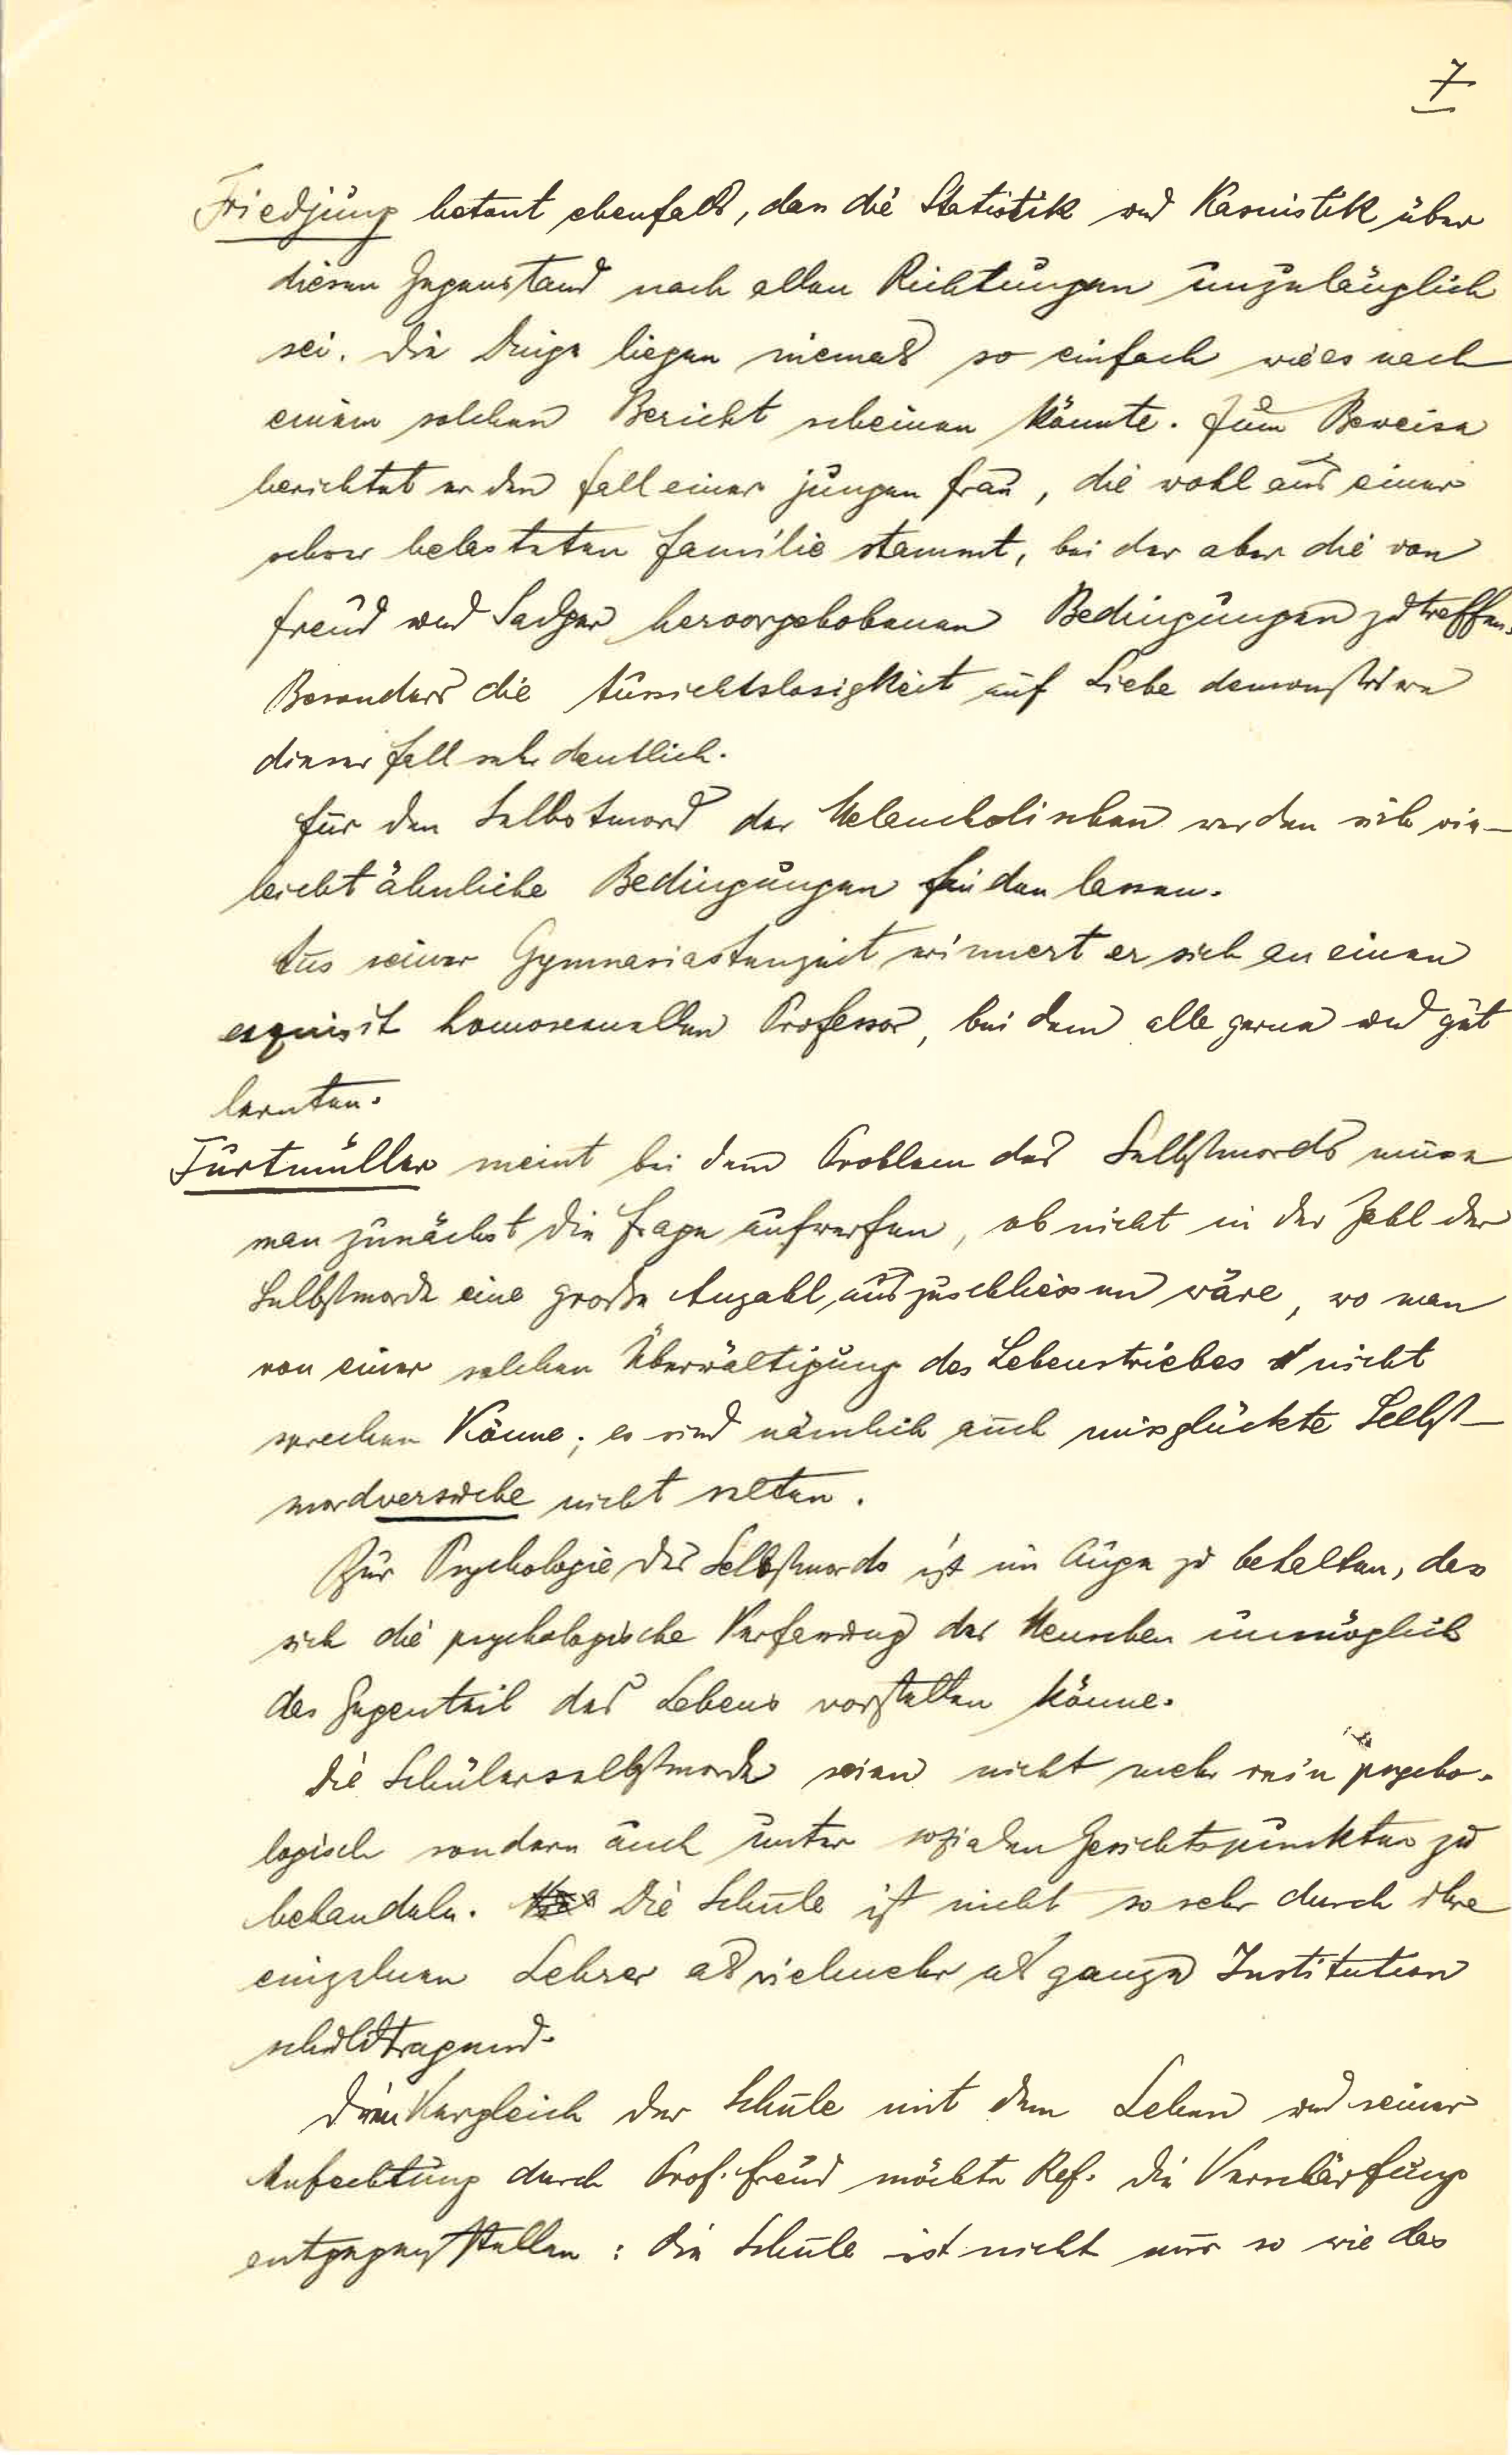 7
Friedjung betont ebenfalls, dass die Statistik und Kasuistik über
diesen Gegenstand nach allen Richtungen unzulänglich
sei. Die Dinge liegen niemals so einfach wie es nach
einem solchen Bericht scheinen könnte. Zum Beweise
berichtet er den Fall einer jungen Frau, die wohl aus einer
schwer belasteten Familie stammt, bei der aber die von
Freud und Sadger hervorgehobenen Bedingungen zutreffen.
Besonders die Aussichtslosigkeit auf Liebe demonstriere
dieser Fall sehr deutlich.
Für den Selbstmord der Melancholischen werden sich vie-
leicht ähnliche Bedingungen finden lassen.
Aus seiner Gymnasiastenzeit erinnert er sich an einen
exquisit homosexuellen Professor, bei dem alle gerne und gut
lernten.
Furtmüller meint bei dem Problem des Selbstmords müsse
man zunächst die Frage aufwerfen, ob nicht in der Zahl der
Selbstmorde eine große Anzahl auszuschliessen wäre, wo man
von einer solchen Überwältigung des Lebenstriebes nicht
sprechen könne; es sind nämlich auch missglückte Selbst-
mordversuche nicht selten.
Zur Psychologie des Selbstmords ist im Auge zu behalten, dass
sich die psychologische Verfassung des Menschen unmöglich
das Gegenteil des Lebens vorstellen könne.
Die Schülerselbstmorde seien nicht mehr rein psycho-
logisch sondern auch unter sozialen Gesichtspunkten zu
behandeln. Die Schule ist nicht so sehr durch ihre
einzelnen Lehrer als vielmehr als ganze Institution
schuldtragend.
Dem Vergleich der Schule mit dem Leben und seiner
Anfechtung durch Prof. Freud möchte Ref. die Verschärfung
entgegenstellen: die Schule ist nicht nur so wie das